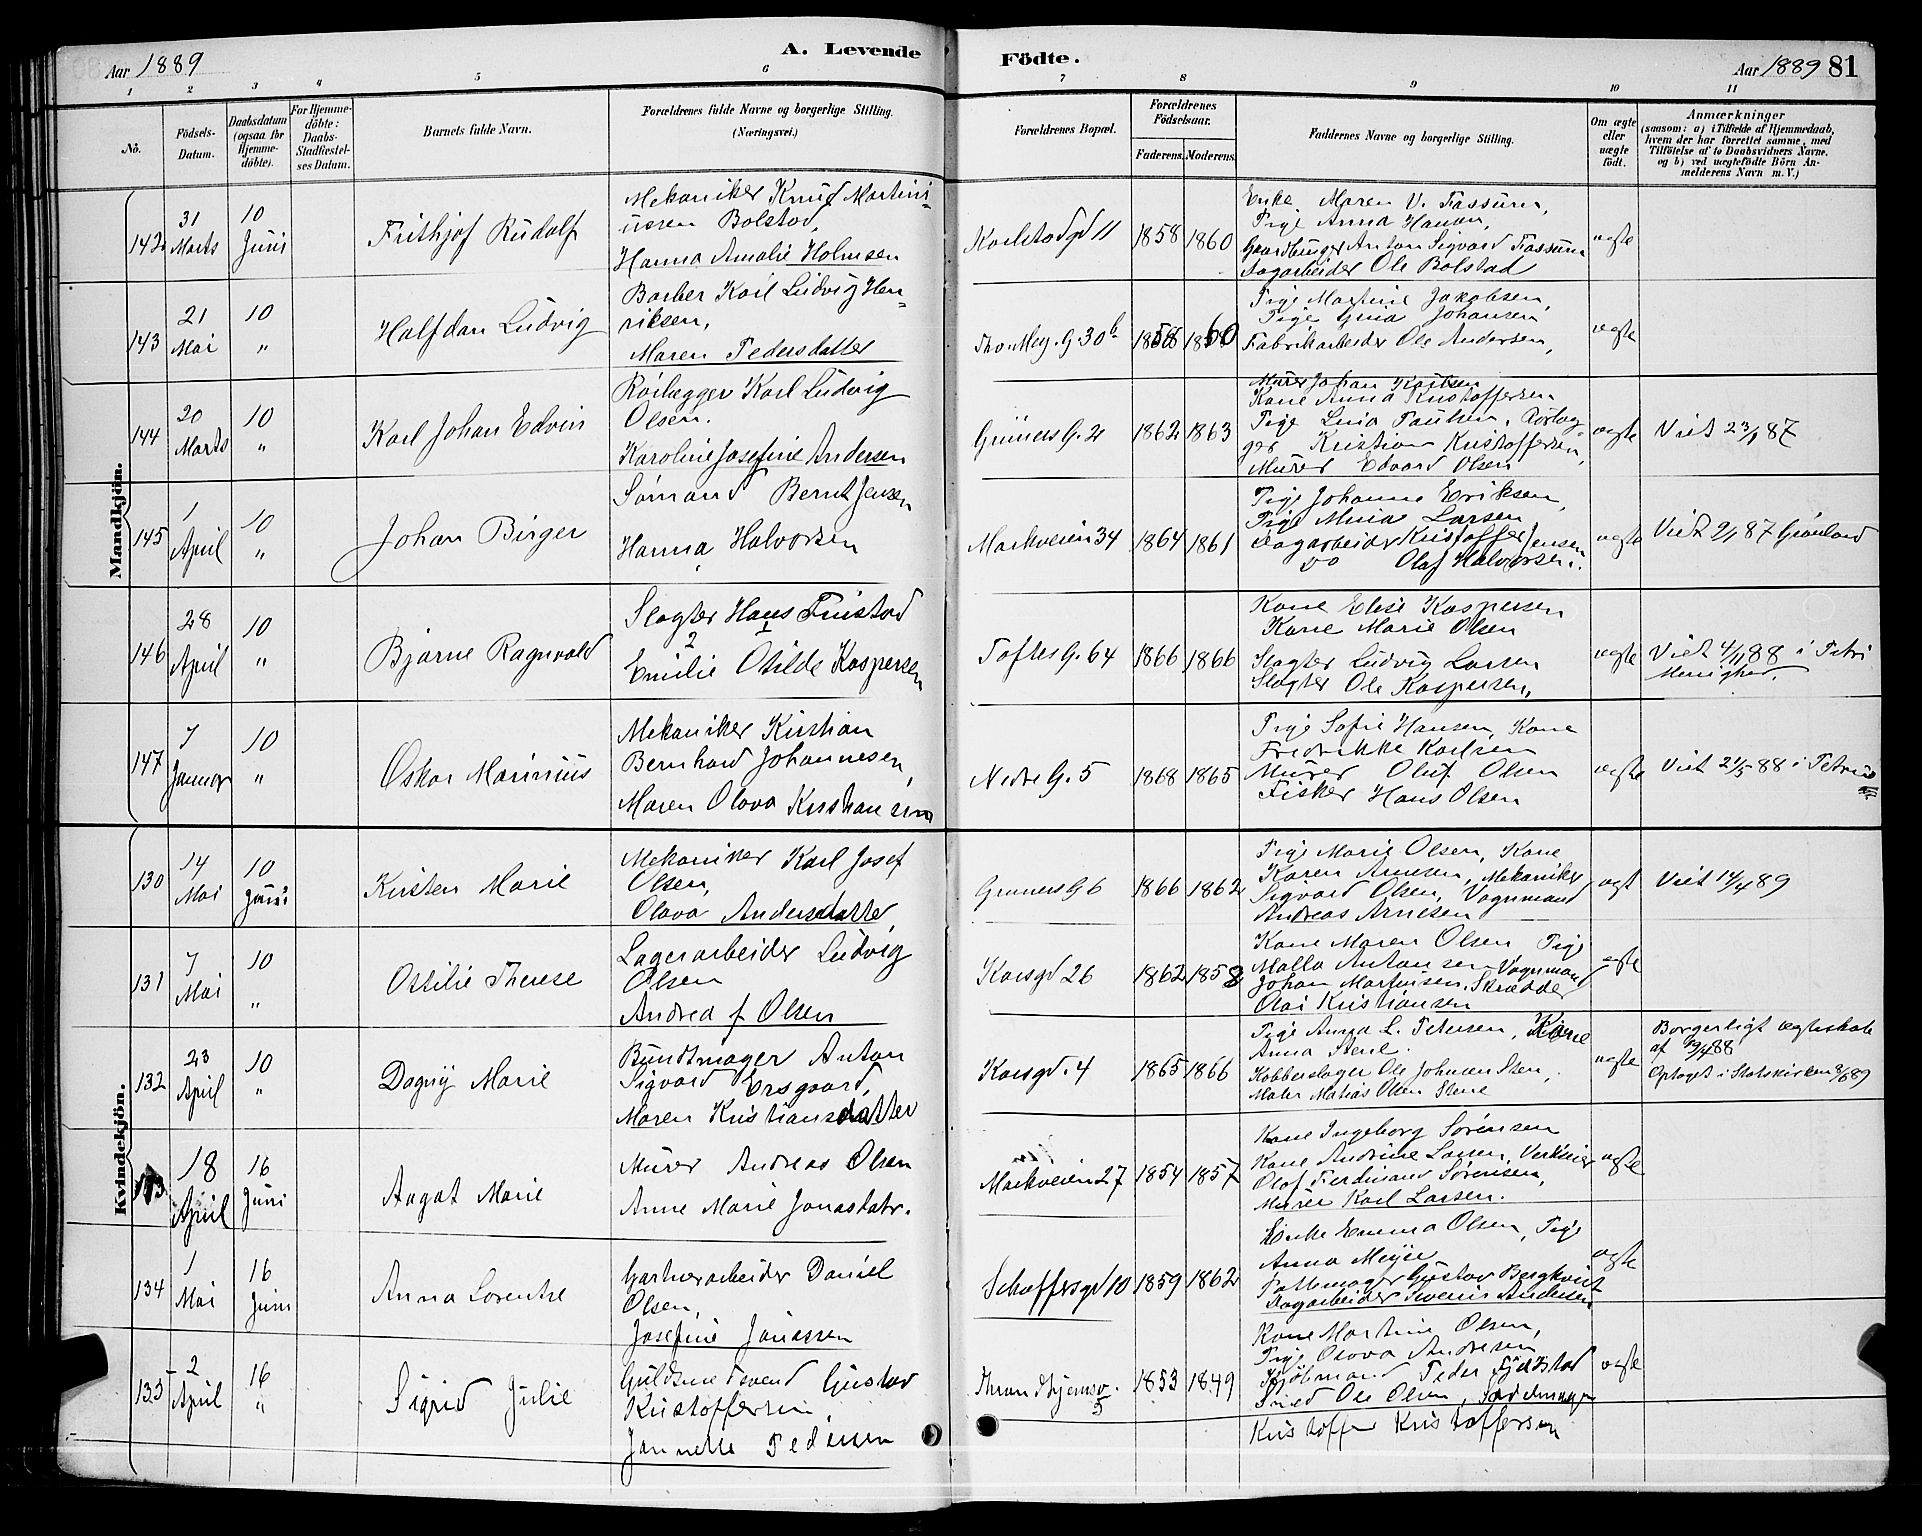 Aar 1889
A. Levende
Födte.
Aar 1889 81
1 2 3 4 5 6 7 8 9 10 11
No.
Födsels-Datum.
Daabsdatum (ogsaa for Hjemme-döbte).
For Hjemme-döbte: Daabs-Stadfæstel-ses Datum.
Barnets fulde Navn.
Forældrenes fulde Navne og borgerlige Stilling. (Næringsvei.)
Forældrenes Bopæl.
Forældrenes Födselsaar.
Faderens. Moderens.
Faddernes Navne og borgerlige Stilling.
Om ægte eller uægte födt.
Anmærkninger
(saasom: a) i Tilfælde af Hjemmedaab,
hvem der har forrettet samme, med
Tilföielse af to Daabsvidners Navne.
og b) ved uægtefödte Börn An-
melderens Navn m. V.)
Mandkjön.
142 31 Marts 10 Juni
Frithjof Rudolf
Mekaniker Knud Martini-
ussen Bolstad,
Hanna Amalie Holmsen
Karlstadgd 11
1858 1860
Enke Maren V. Fossum,
Pige Anna Hansen,
Gaardbruger Anton Sigvard Fossum
Dagarbeider Ole Bolstad
ægte
143 21 Mai 10 "
Halfdan Ludvig
Barber Karl Ludvig Hen-
riksen,
Maren Pedersdatter
Tho. Mey. G. 30b
1858 1860
Pige Martine Jakobsen,
Pige Gina Johansen
Fabrikarbeider Ole Andersen,
ægte
144 20 Marts 10 "
Karl Johan Edvin
Rörlægger Karl Ludvig
Olsen.
Karoline Josefine Andersen
Gruners G. 2
1862 1863
Murer Johan Karlsen
Kone Anna Kristoffersen
Pige Lina Paulsen, Rörlæg-
ger Kristian Kristoffersen,
Murer Edvard Olsen
ægte
Viet 23/1 87
145 1 April 10 "
Johan Birger
Sömand Bernt Jensen
Hanna Halvorsen
Markveien 34
1864 1861
Pige Johanne Eriksen,
Pige Mina Larsen
Dagarbeider Kristoffer Jensen
Do Olaf Halvorsen.
ægte
Viet 9/1 87 Grönland
146 28 April 10 "
Bjarne Ragnvald
Slagter Hans Finstad
2 1
Emilie Otilde Kaspersen
Toftes G. 64
1866 1866
Kone Elise Kaspersen
Kone Marie Olsen
Slagter Ludvig Larsen
Slagter Ole Kaspersen,
ægte
Viet 4/11 88 i Petri
Menighed.
147 7 Januar 10 "
Oskar Marinius
Mekaniker Kristian
Bernhard Johannesen,
Maren Olava Kristiansen
Nedre G. 5
1868 1865
Pige Sofie Hansen, Kone
Fredrikke Karlsen
Murer Oluf Olsen
Fisker Hans Olsen
ægte
Viet 21/5 88 i Petrus
Kvindekjön.
130 14 Mai 10 Juni
Kirsten Marie
Mekaniker Karl Josef
Olsen,
Olava Andersdatter
Gruners G 6
1866 1862
Pige Marie Olsen, Kone
Karen Arnesen, Mekaniker
Sigvard Olsen, Vognmand
Andreas Arnesen
ægt
Viet 14/4 89
131 7 Mai 10 "
Ottilie Therese
Lagerarbeider Ludvig
Olsen
Andrea f Olsen
Korsgd 26
1862 1858
Kone Maren Olsen Pige
Malla Antonsen Vognmand
Johan Martinsen, Skrædder
Olai Kristiansen
ægte
132 23 April 10 "
Dagny Marie
Bundtmager Anton
Sigvard Ersgaard,
Maren Kristiansdatter
Korsgd. 4
1865 1866
Pige Anna L. Petersen, Kone
Anna Stene.
Kobberslager Ole Johan Olsen,
Maler Matias Olsen Stene
ægte
Borgerligt ægteskab
af 19/4 88
Optaget i Statskirken 8/6 89
133 18 April 16 Juni
Aagot Marie
Murer Andreas Olsen
Anne Marie Jonasdatr.
Markveien 27
1854 1857
Kone Ingeborg Sörensen
Kone Andrine Larsen, Verkseier
Olaf Ferdinand Sörensen,
Murer Karl Larsen.
ægte
134 1 Mai 16 Juni
Anna Lorentze
Garverarbeider Daniel
Olsen,
Josefine Jonassen
Schoffersgd 10
1859 1862
Enke Emma Olsen, Pige
Anna Meyse
Pottemager Gustav Bergkvist
Dagarbeider Severin Andersen
ægte
135 2 April 16 "
Sigrid Julie
Guldsmedsvend Gustav
Kristoffersen,
Jannette Pedersen
Throndhjemsv. 5
1853 1849
Kone Martine Olsen,
Pige Olava Andresen
Kjöbmand Peder Fjeldstad
Smed Ole Olsen, Sadelmager
Kristoffer Kristoffersen
ægte